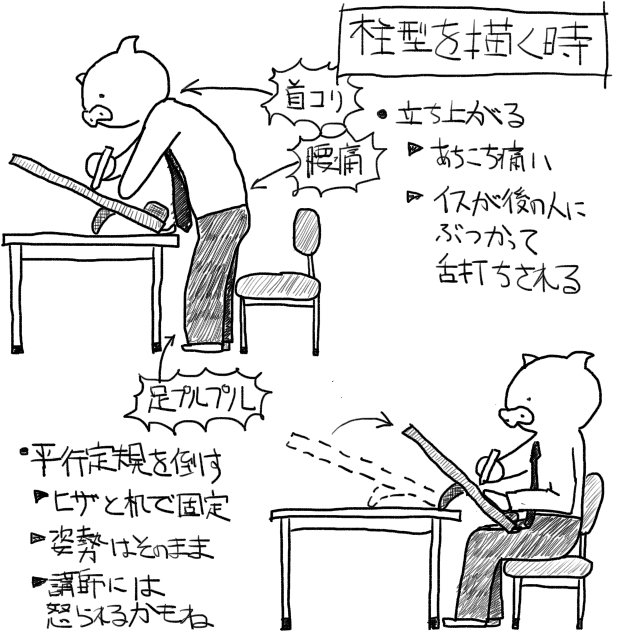 柱型を描く時
首コリ
腰痛
• 立ち上がる
▶ あちこち痛い
▶ イスが後の人に
ぶつかって
舌打ちされる
足プルプル
• 平行定規を倒す
▶ ヒザと机で固定
▶ 姿勢はそのまま
▶ 講師には
怒られるかもね